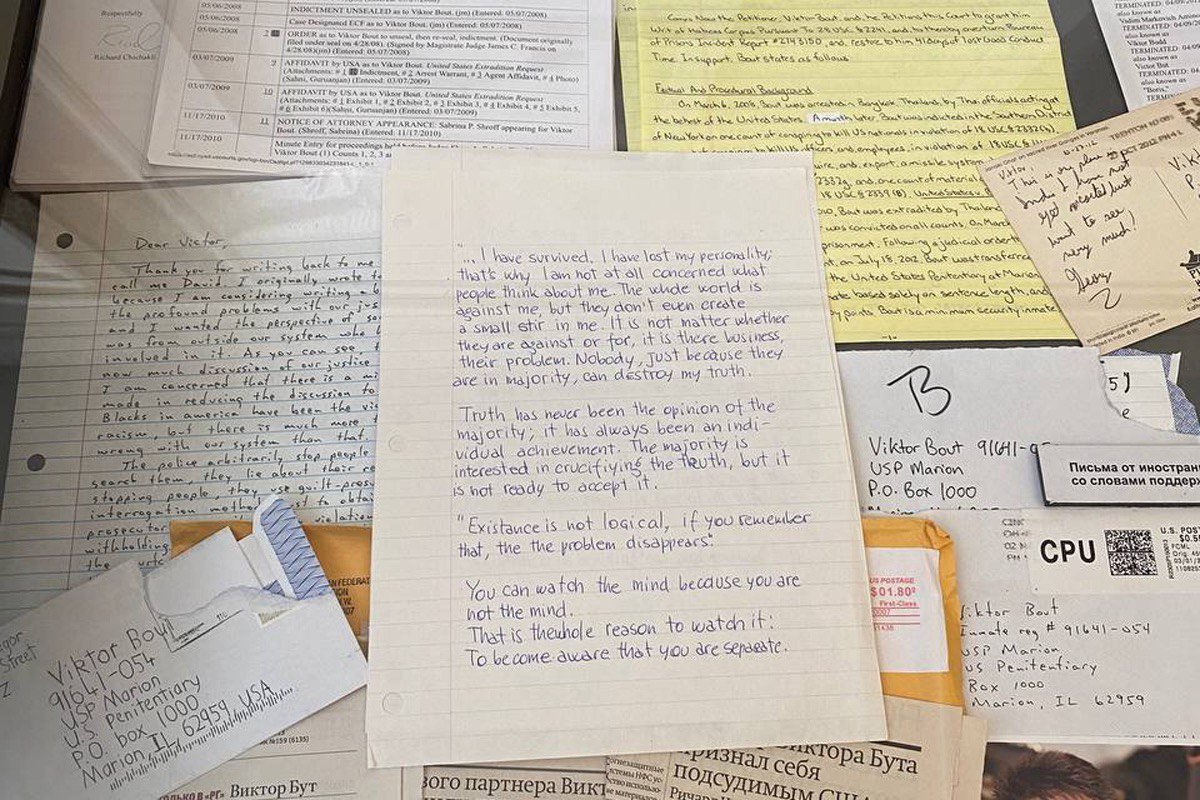 Respectfully
Richard Chichakli
05/06/2008
INDICTMENT UNSEALED as to Viktor Bout. (jm) (Entered: 05/07/2008)
05/06/2008
Case Designated ECF as to Viktor Bout. (jm) (Entered: 05/07/2008)
05/06/2008
ORDER as to Viktor Bout to unseal, then re-seal, indictment. (Document originally
filed under seal on 4/28/08). (Signed by Magistrate Judge James C. Francis on
4/28/08)(jm) (Entered: 05/07/2008)
03/07/2009
AFFIDAVIT by USA as to Viktor Bout. United States Extradition Request
(Attachments: # 1 Indictment, # 2 Arrest Warrant, # 3 Agent Affidavit, # 4 Photo)
(Sahni, Guruanjan) (Entered: 03/07/2009)
03/07/2009
10
AFFIDAVIT by USA as to Viktor Bout. United States Extradition Request
(Attachments: # 1 Exhibit 1, # 2 Exhibit 2, # 3 Exhibit 3, # 4 Exhibit 4, # 5 Exhibit 5,
# 6 Exhibit 6)(Sahni, Guruanjan) (Entered: 03/07/2009)
11/17/2010
11
NOTICE OF ATTORNEY APPEARANCE: Sabrina P. Shroff appearing for Viktor
Bout. (Shroff, Sabrina) (Entered: 11/17/2010)
11/17/2010
Minute Entry for proceedings held before
Viktor Bout (1) Counts 1, 2, 3
Comes Now the Petitioner, Viktor Bout, and he Petitions this Court to grant him
Writ of Habeas Corpus Pursuant To 28 USC § 2241, and to thereby overturn Bureau
of Prisons Incident Report #2143150, and restore to him 41 days of lost Good Conduct
Time. In support, Bout states as follows
Factual And Procedural Background
On March 6, 2008, Bout was arrested in Bangkok, Thailand, by Thai officials acting at
the behest of the United States. A month later, Bout was indicted in the Southern District
of New York on one count of conspiring to kill US nationals in violation of 18 USC § 2332(b)
officers and employees, in violation of 18 USC §
and export, a missile system
2332g, and one count of material
18 USC § 2339(B). United States v.
Bout was extradited by Thailand
was convicted on all counts. On March
prisonment. Following a judicial order
on July 18, 202, Bout was transferred
the United States Penitentiary at Marion
based solely on sentence length, and
points Bout is a minimum security inmate
-1-
Vadim Markovich
TERMINATED: 04
also known as
Viktor Budd
TERMINATED: 04
also known as
Viktor But
TERMINATED: 04
also known as
"Boris,"
TERMINATED
TRENTON NJ
OCT 2012
Victor,
This is my
I have not
yet visited but
want to see
very much!
Dear Victor,
Thank you for writing back to me.
call me David. I originally wrote to
because I am considering writing a
the profound problems with our jus
and I wanted the perspective of
was from outside our system who
involved in it. As you can see
now much discussion of our justice
I am concerned that there is a
made in reducing the discussion to
Blacks in america have been the vic
racism, but there is much more
wrong with our system than that.
The police arbitrarily stop people
search them, they lie about their
stopping people, they use guilt-presu
interrogation method to obtain
prosecutor
withholding
"... I have survived. I have lost my personality;
that's why I am not at all concerned what
people think about me. The whole world is
against me, but they don't even create
a small stir in me. It is not matter whether
they are against or for, it is there business,
their problem. Nobody, just because they
are in majority, can destroy my truth.
Truth has never been the opinion of the
majority; it has always been an indi-
vidual achievement. The majority is
interested in crucifiying the truth, but it
is not ready to accept it.
"Existance is not logical, if you remember
that, the the problem disappears".
You can watch the mind because you are
not the mind.
That is thewhole reason to watch it:
To become aware that you are separate.
Viktor Bout 91641-05
USP Marion
P.O. Box 1000
Письма от иностран
со словами поддерж
CPU
U.S. POST
US POSTAGE
$01.80
First-Class
Viktor Bout
Inmate reg # 91641-054
USP Marion
US Penitentiary
Box 1000
Marion, IL 62959
Street
Viktor Bout
91641-054
USP Marion
U.S. Penitentiary
P.O. box 1000
Marion, IL, 62959, USA
№159 (6135)
Виктор Бут
ого партнера Викт
Виктора Бута
признал себя
подсудимым США